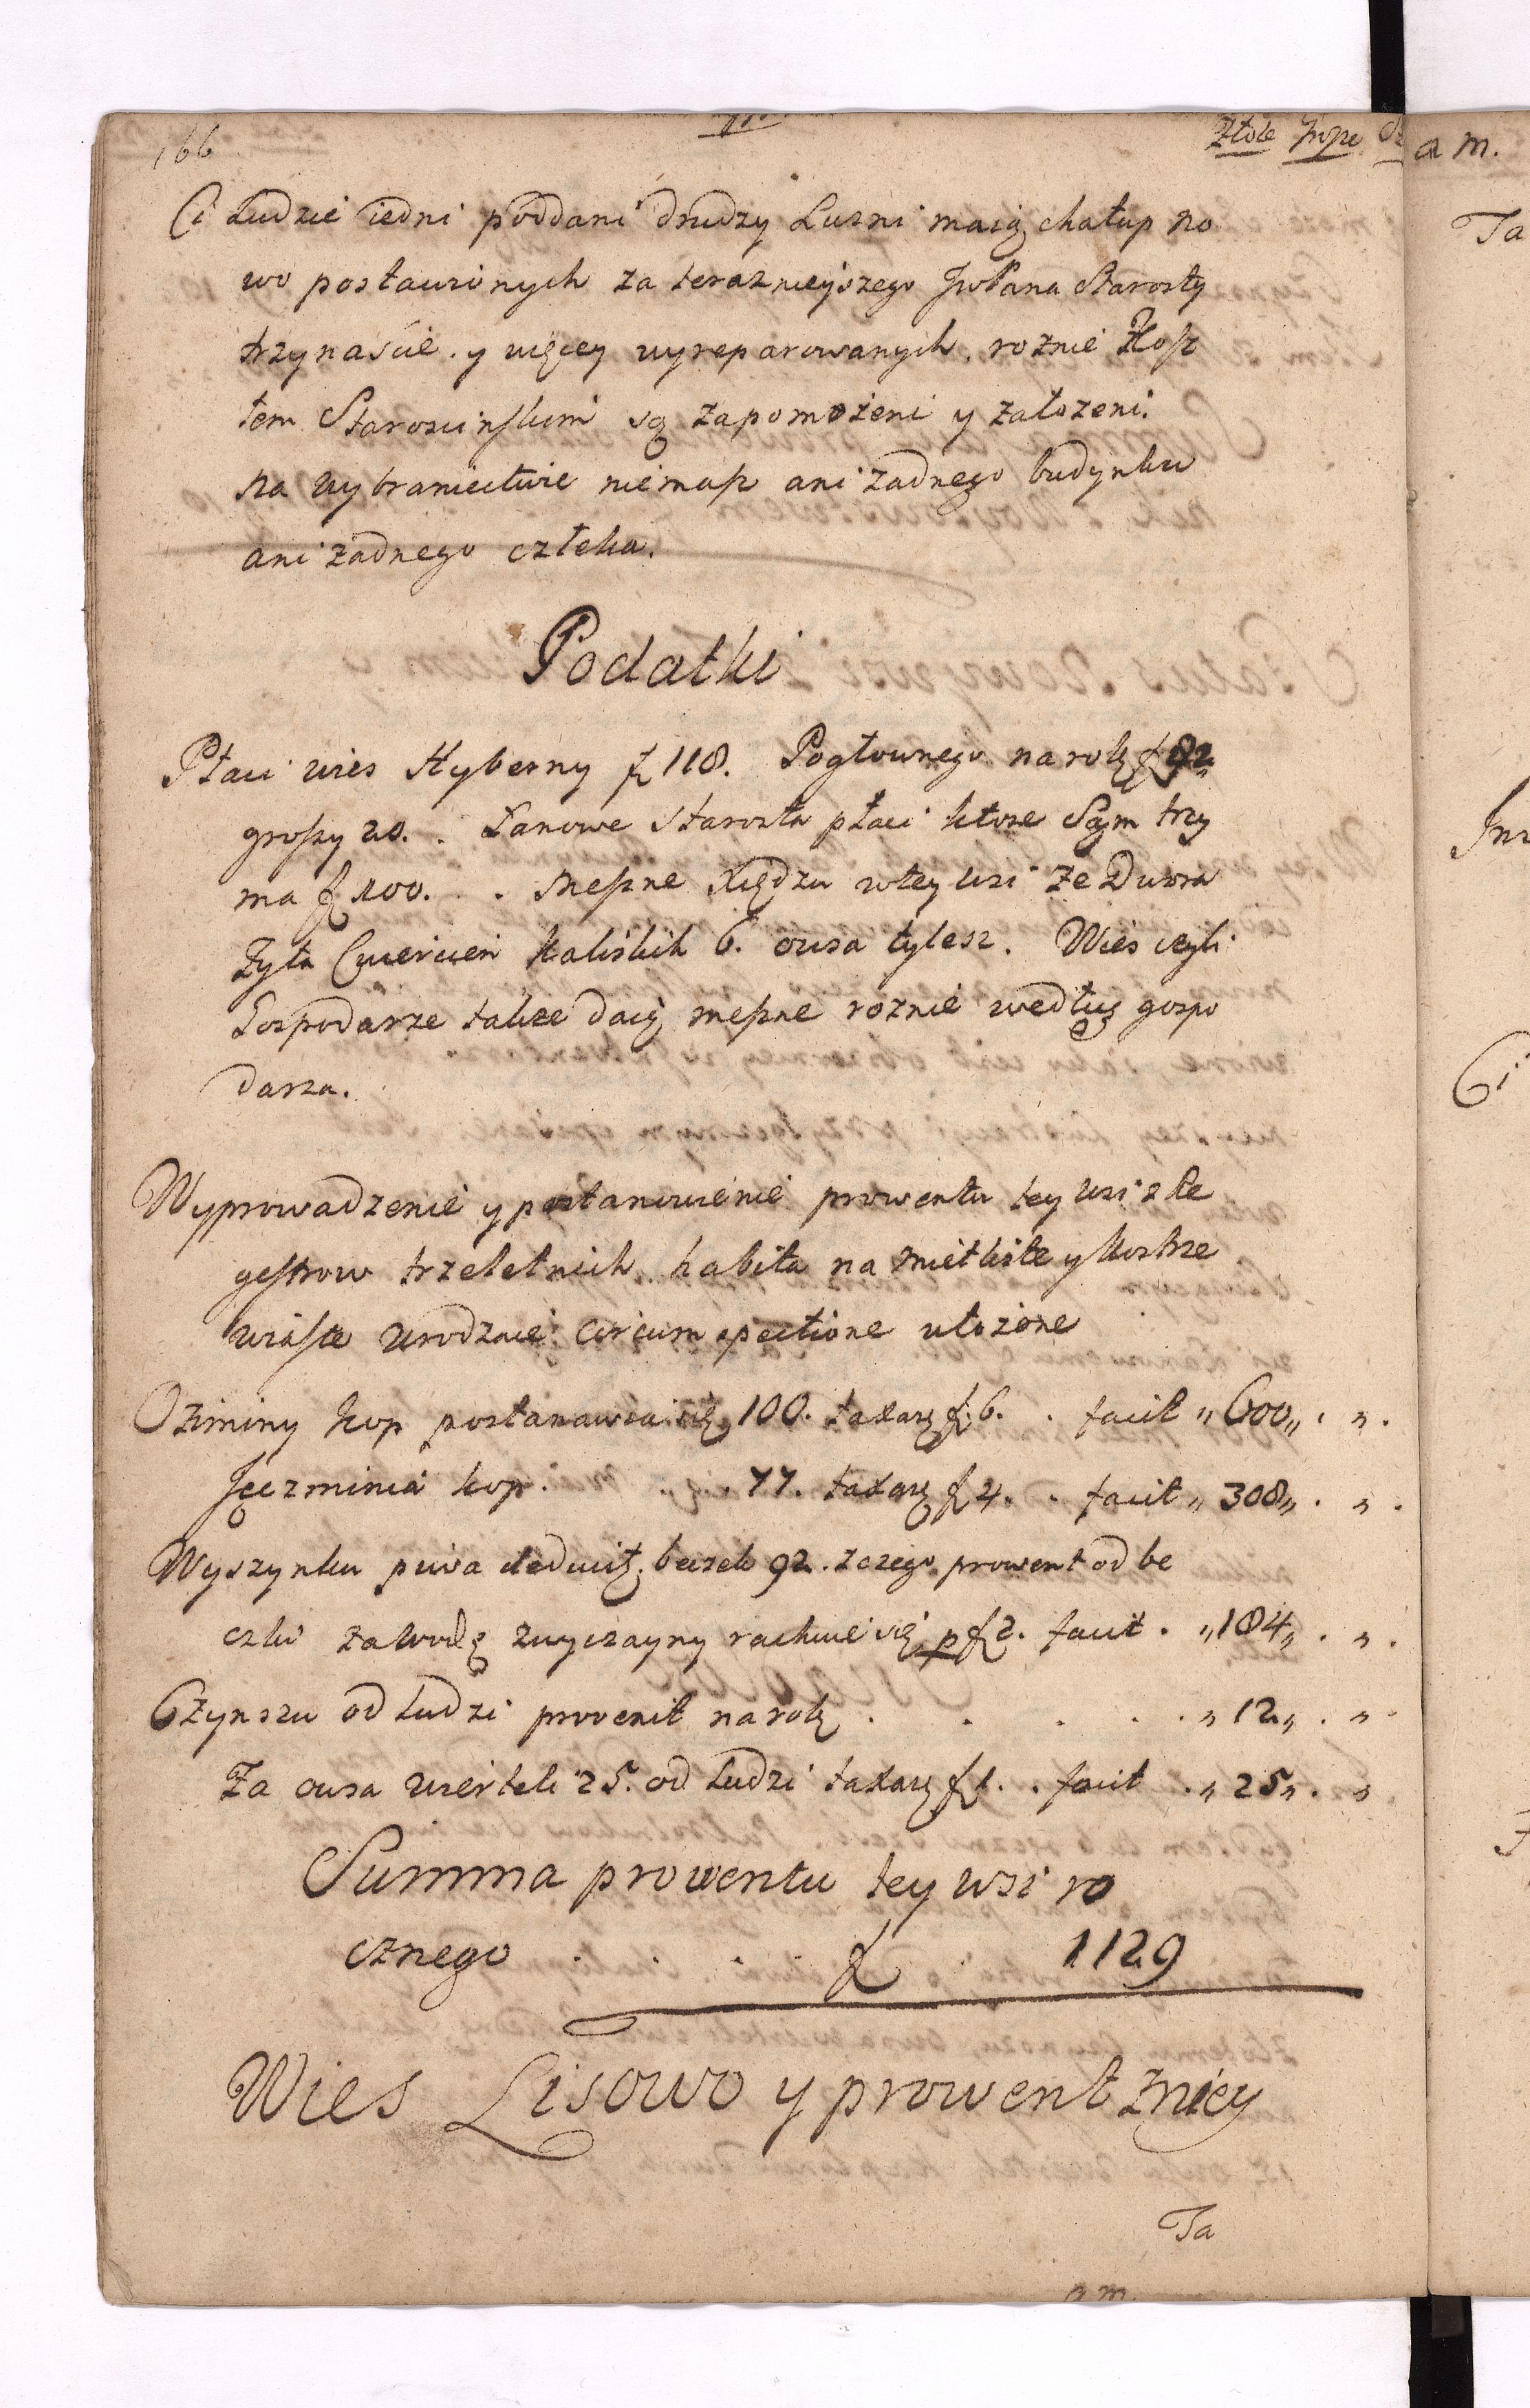 166
Złote grosze
Ci Ludzie iedni poddani drudzy Luzni maią chałup no
wo postawionych za teraznieyszego JwPana Starosty
trzynaście. y więcey wyreparowanych. roznie Kosz
tem Staroscinskim są zapomożeni y założeni.
Na wybraniectwie niemasz ani żadnego budynku
ani żadnego człeka.
Podatki
Płaci wies Hyberny ƒ 118. Pogłownego na rok ƒ 92
groszy 20. . Łanowe Starosta płaci ktore Sam trzy
ma ƒ 100. . . Meszne Xiędzu wtey wsi ze Dwora
Zyta Cwiercień Kaliskich 6. owsa tylesz. Wies czyli
Gospodarze takze daią meszne roznie według gospo
darza.
Wyprowadzenie y postanowienie prowentu tey wsi z Re
gestrow trzeletnich habita na mietliste y kostrze
wiaste urodzaie circumspectione ułożone
Oziminy kop postanawia się 100. taxaą ƒ 6. . facit „ 600 „ . „ .
Jęczmienia kop. . . 77. taxaą ƒ 4. . facit „ 308 „ . „ .
Wyszynku piwa deducitꝫ beczek 92. z czego prowent od be
czki za wodę zwyczayny rachuie się p ƒ 2. facit . „ 184 „ . „ .
Czynszu od Ludzi provenit na rok . . . . . „ 12 „ . „ .
Za owsa wierteli 25. od Ludzi taxaą ƒ 1. . facit . „ 25 „ . „
Summa prowentu tey wsi ro
cznego . . . ƒ 1129
Wies Lisowo y prowent zniey
Ta
a m.
Ta